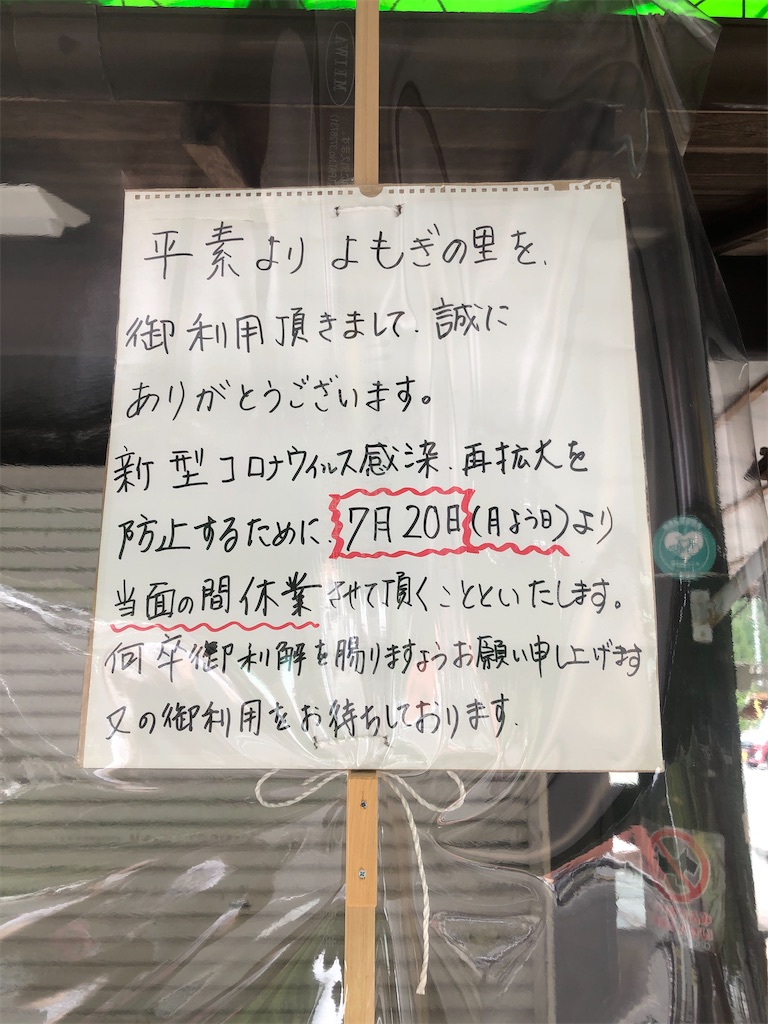 平素より よもぎの里を、
御利用頂きまして、誠に
ありがとうございます。
新型コロナウィルス感染、再拡大を
防止するために、7月20日(月よう日)より
当面の間休業させて頂くことといたします。
何卒御利解を賜りますようお願い申し上げます
又の御利用をお待ちしております.
MEIWA